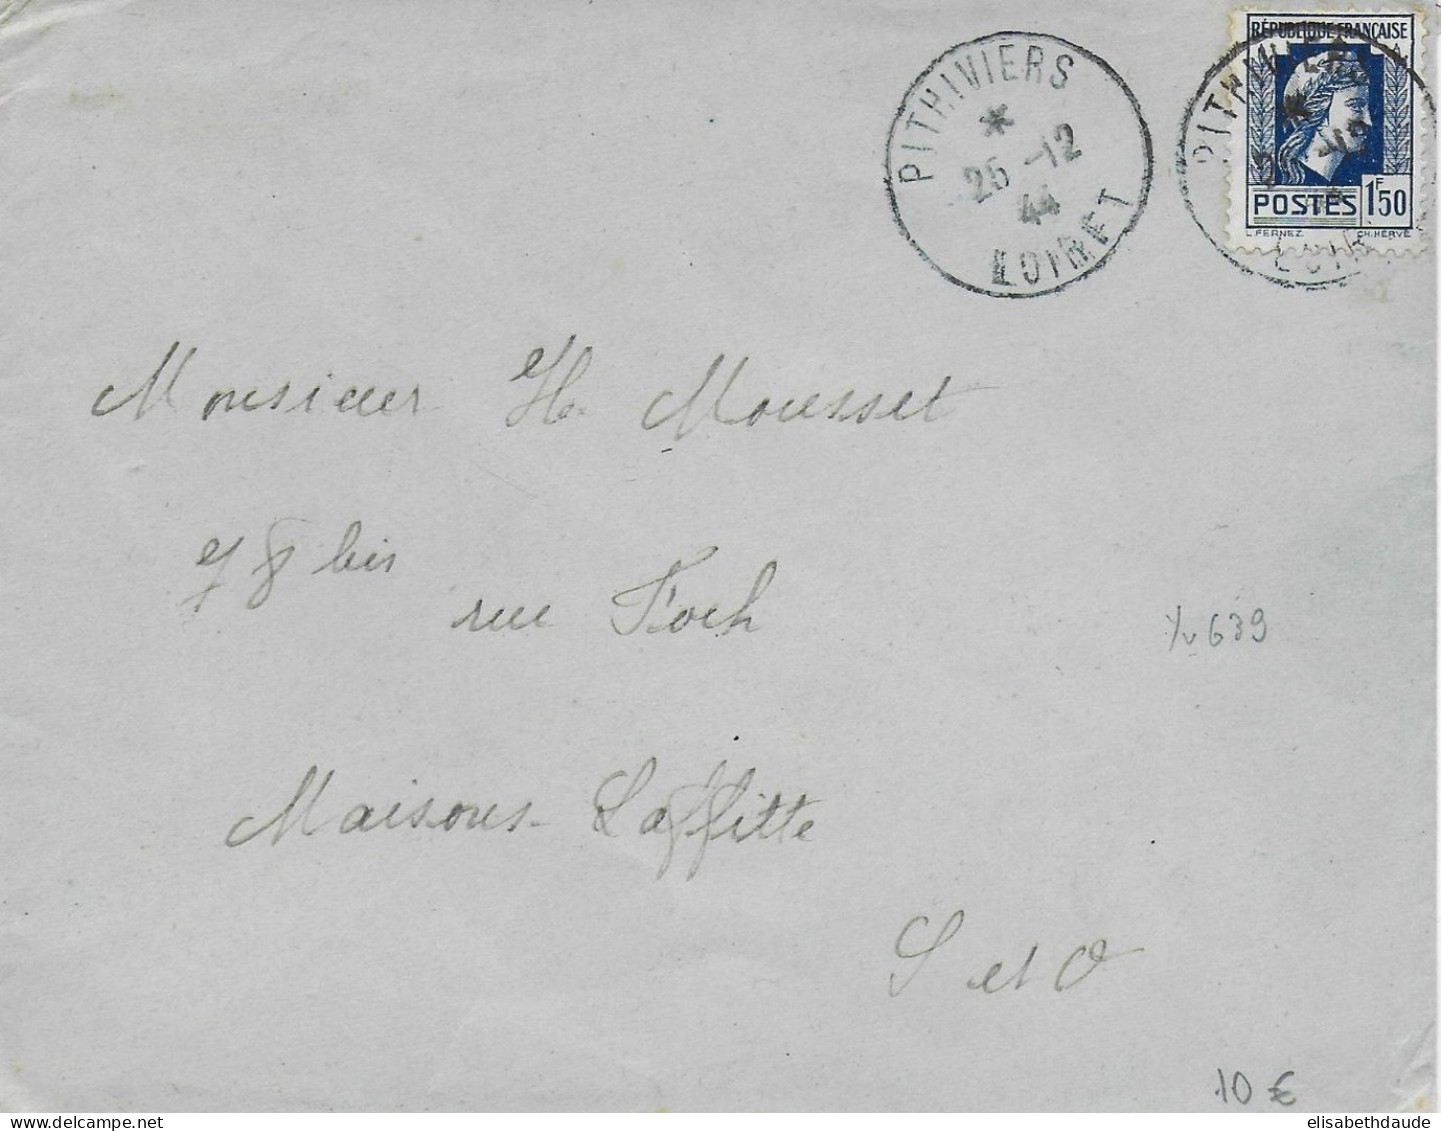 PITHIVIERS
*
25 -12
44
LOIRET
RÉPUBLIQUE FRANÇAISE
POSTES 1F50
L. FERNEZ CH. HERVÉ
PITHIVIERS
Monsieur H. Mousset
78 bis
rue Foch
Yv 639
Maisons-Laffitte
S et O
10 €
elisabethdaude